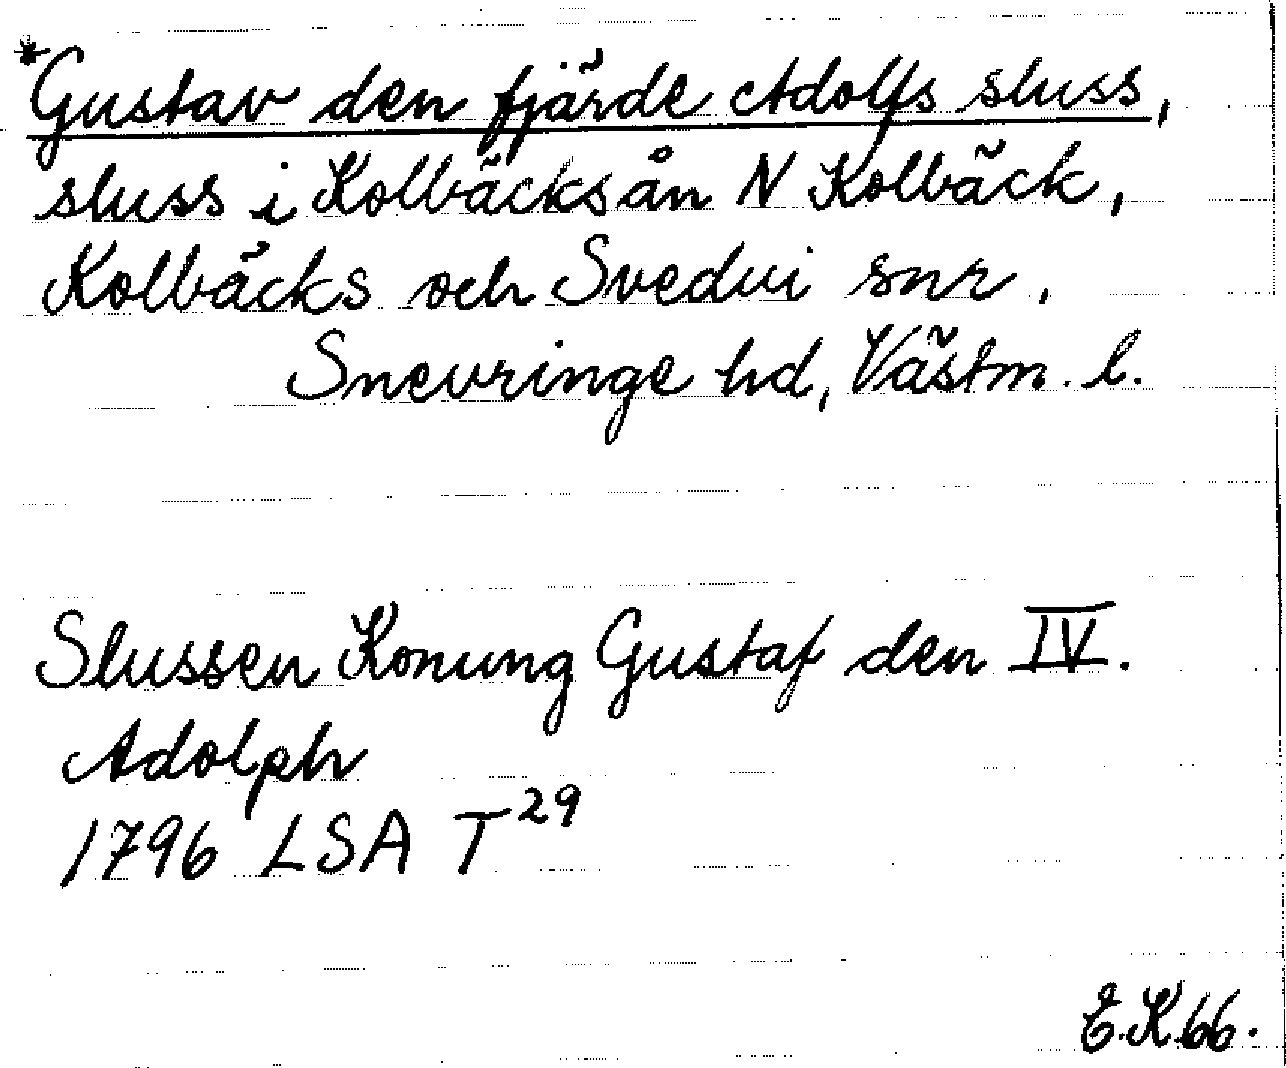 *Gustav den fjärde Adolfs sluss,
sluss i Kolbäcksån N Kolbäck,
Kolbäcks och Svedvi snr,
Snevringe hd, Västm. l.
Slussen Konung Gustaf den IV.
Adolph
1796 LSA T29
E.K.66.